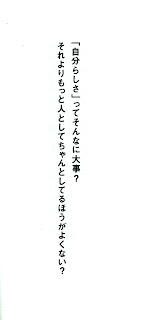 「自分らしさ」ってそんなに大事?
それよりもっと人としてちゃんとしてるほうがよくない?